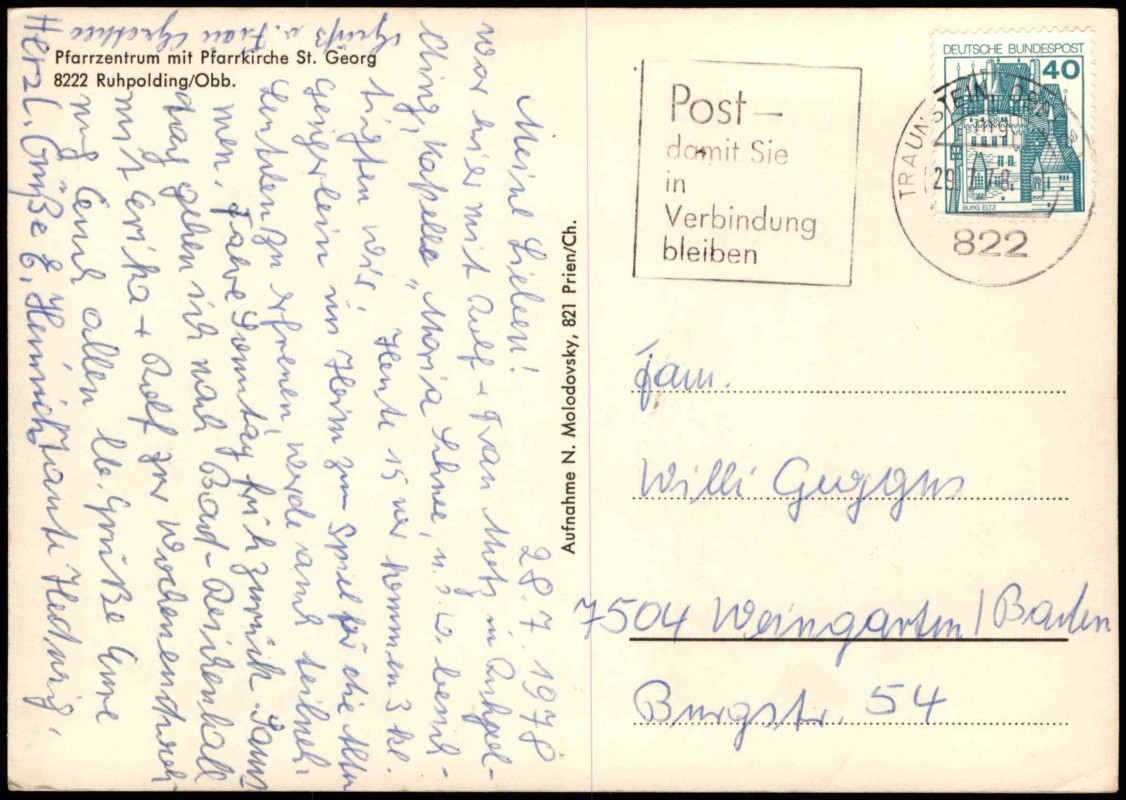 Pfarrzentrum mit Pfarrkirche St. Georg
8222 Ruhpolding/Obb.
28.7.1978
Meine Lieben!
War hier mit Rolf + Frau Metz in Ruhpol-
ding, Kapelle „Maria Schnee" u. s. w. besich-
tigten wir. Heute 15 Uhr kommen 3 kl.
Geigerlein ins Heim zum Spiel für die Alten
Leutchen zu erfreuen, werde auch teilneh-
men. Fahre Sonntag früh zurück. Sams
tag gehen wir nach Bad-Reichenhall
mit Erika + Rolf zur Wochenend
Euch allen lb. Grüße Eure
Herzl. Grüße E. Heinrich Tante Hedwig,
Gruß a. Frau
Aufnahme N. Molodovsky, 821 Prien/Ch.
Post –
damit Sie
in
Verbindung
bleiben
DEUTSCHE BUNDESPOST
40
BURG ELTZ
TRAUNSTEIN, OBB
29.7.78
822
Fam.
Willi Geggus
7504 Weingarten/Baden
Burgstr. 54